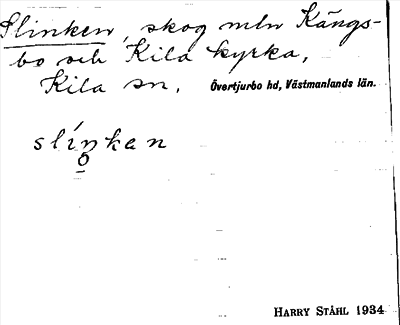 Slinken, skog mln Kängs-
bo och Kila kyrka,
Kila sn. Övertjurbo hd, Västmanlands län.
slinken
HARRY STÅHL 1934